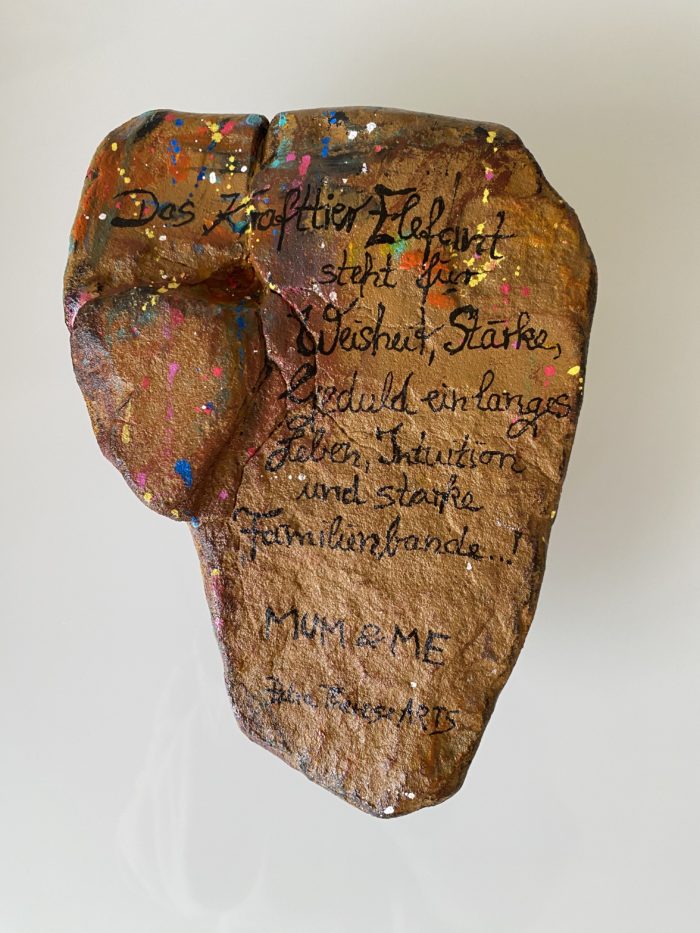 Das Krafttier Elefant
steht für
Weisheit, Stärke,
Geduld ein langes
Leben, Intuition
und starke
Familienbande...!
MUM & ME
Therese ARTS